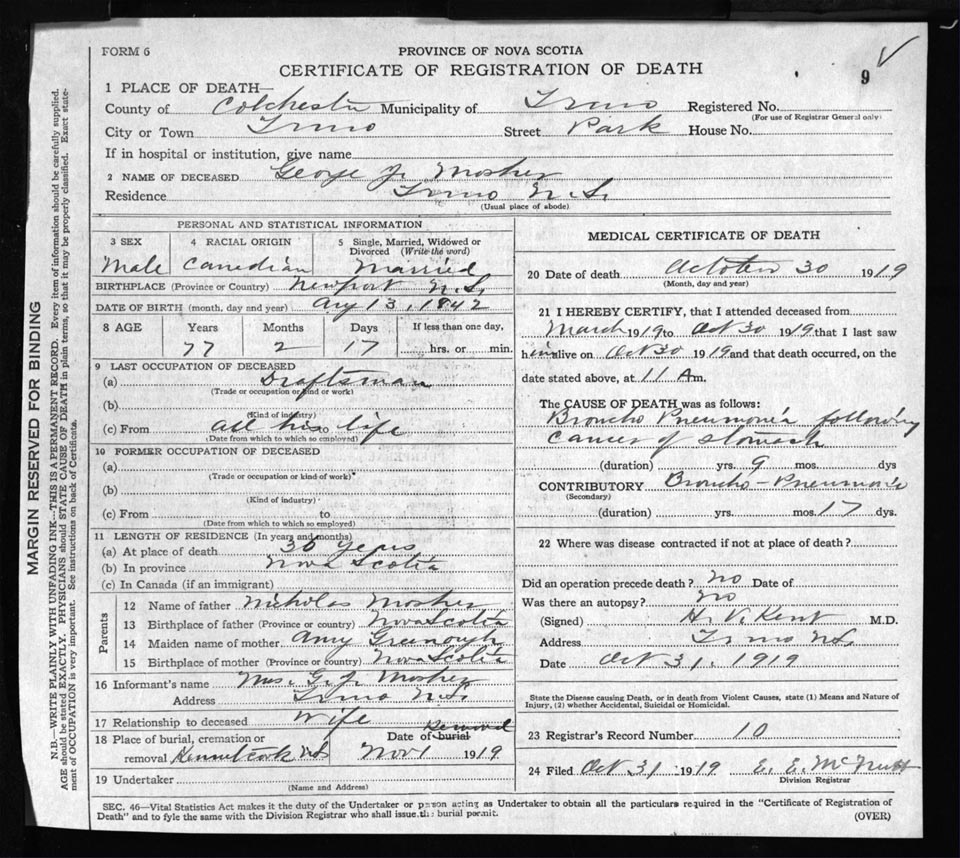 FORM 6
PROVINCE OF NOVA SCOTIA
CERTIFICATE OF REGISTRATION OF DEATH
9
1 PLACE OF DEATH—
County of Colchester Municipality of Truro Registered No.
(For use of Registrar General only)
City or Town Truro Street Park House No.
If in hospital or institution, give name
2 NAME OF DECEASED George J. Mosher
Residence Truro N.S.
(Usual place of abode)
PERSONAL AND STATISTICAL INFORMATION
3 SEX 4 RACIAL ORIGIN 5 Single, Married, Widowed or Divorced (Write the word)
Male Canadian Married
BIRTHPLACE (Province or Country) Newport N.S.
DATE OF BIRTH (month, day and year) Aug 13, 1842
8 AGE Years Months Days If less than one day,
77 2 17 hrs. or min.
9 LAST OCCUPATION OF DECEASED
(a) Draftsman
(Trade or occupation or kind or work)
(b)
(Kind of industry)
(c) From all his to life
(Date from which to which so employed)
10 FORMER OCCUPATION OF DECEASED
(a)
(Trade or occupation or kind of work)
(b)
(Kind of industry)
(c) From to
(Date from which to which so employed)
11 LENGTH OF RESIDENCE (In years and months)
(a) At place of death 30 years
(b) In province Nova Scotia
(c) In Canada (if an immigrant)
Parents
12 Name of father Nicholas Mosher
13 Birthplace of father (Province or country) Nova Scotia
14 Maiden name of mother Amy Greenough
15 Birthplace of mother (Province or country) Nova Scotia
16 Informant's name Mrs. G. J. Mosher
Address Truro N.S.
17 Relationship to deceased Wife
18 Place of burial, cremation or Date of burial Removal
removal Kennetcook NS Nov 1 1919
19 Undertaker
(Name and Address)
MEDICAL CERTIFICATE OF DEATH
20 Date of death October 30 1919
(Month, day and year)
21 I HEREBY CERTIFY, that I attended deceased from
March 1919 to Oct 30 1919 that I last saw
him alive on Oct 30 1919 and that death occurred, on the
date stated above, at 11 A m.
The CAUSE OF DEATH was as follows:
Broncho Pneumonia following
cancer of stomach
(duration) yrs. 9 mos. dys
CONTRIBUTORY Broncho-Pneumonia
(Secondary)
(duration) yrs. mos. 17 dys.
22 Where was disease contracted if not at place of death?
Did an operation precede death? no Date of
Was there an autopsy? no
(Signed) H. V. Kent M.D.
Address Truro N.S.
Date Oct 31, 1919
State the Disease causing Death, or in death from Violent Causes, state (1) Means and Nature of
Injury, (2) whether Accidental, Suicidal or Homicidal.
23 Registrar's Record Number 10
24 Filed Oct 31 1919 E. E. McNutt
Division Registrar
SEC. 46—Vital Statistics Act makes it the duty of the Undertaker or person acting as Undertaker to obtain all the particulars required in the "Certificate of Registration of
Death" and to fyle the same with the Division Registrar who shall issue the burial permit. (OVER)
MARGIN RESERVED FOR BINDING
N.B.—WRITE PLAINLY WITH UNFADING INK—THIS IS A PERMANENT RECORD. Every item of information should be carefully supplied.
AGE should be stated EXACTLY. PHYSICIANS should STATE CAUSE OF DEATH in plain terms, so that it may be properly classified. Exact state-
ment of OCCUPATION is very important. See instructions on back of Certificate.